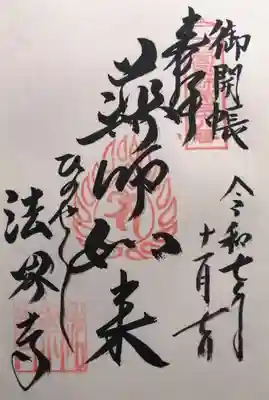 御開帳
奉拝
薬師如来
ひのやくし
法界寺
令和七年
十一月七日